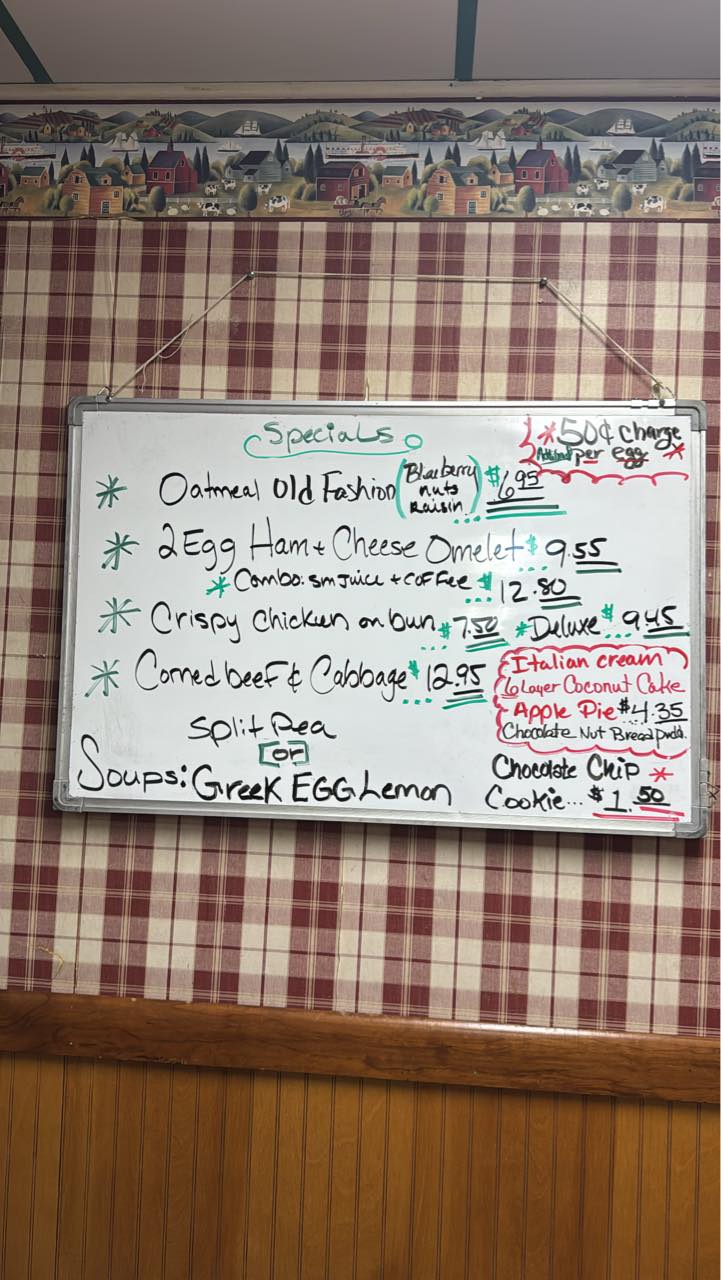 Specials
*50¢ charge
per egg *
* Oatmeal Old Fashion (Blueberry nuts Raisin) $6.95
* 2 Egg Ham + Cheese Omelet $9.55
* Combo: sm Juice + Coffee $12.80
* Crispy Chicken on bun $7.50 *Deluxe $9.45
* Corned beef & Cabbage $12.95
Italian cream
6 Layer Coconut Cake
Apple Pie $4.35
Chocolate Nut Bread pudd.
Split Pea
or
Soups: Greek EGG Lemon
Chocolate Chip *
Cookie... $1.50